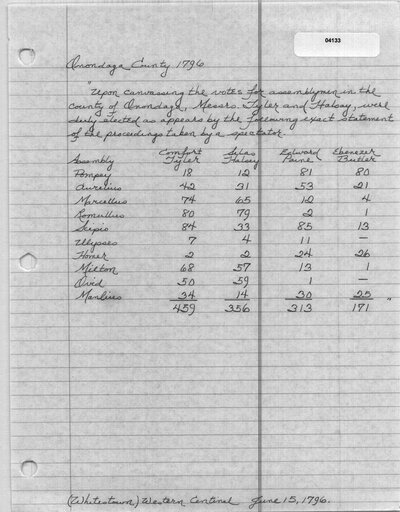 04133
Onondaga County 1796
"Upon canvassing the votes for assemblymen in the
county of Onondaga, Messrs. Tyler and Halsey, were
duly elected as appears by the following exact statement
of the proceedings taken by a spectator.
Assembly Comfort Tyler Silas Halsey Edward Paine Ebenezer Butler
Pompey 18 12 81 80
Aurelius 42 31 53 21
Marcellus 74 65 12 4
Romullus 80 79 2 1
Scipio 84 33 85 13
Ulysses 7 4 11 —
Homer 2 2 24 26
Milton 68 57 13 1
Ovid 50 59 1 —
Manlius 34 14 30 25
459 356 313 171 "
(Whitestown) Western Centinel June 15, 1796.